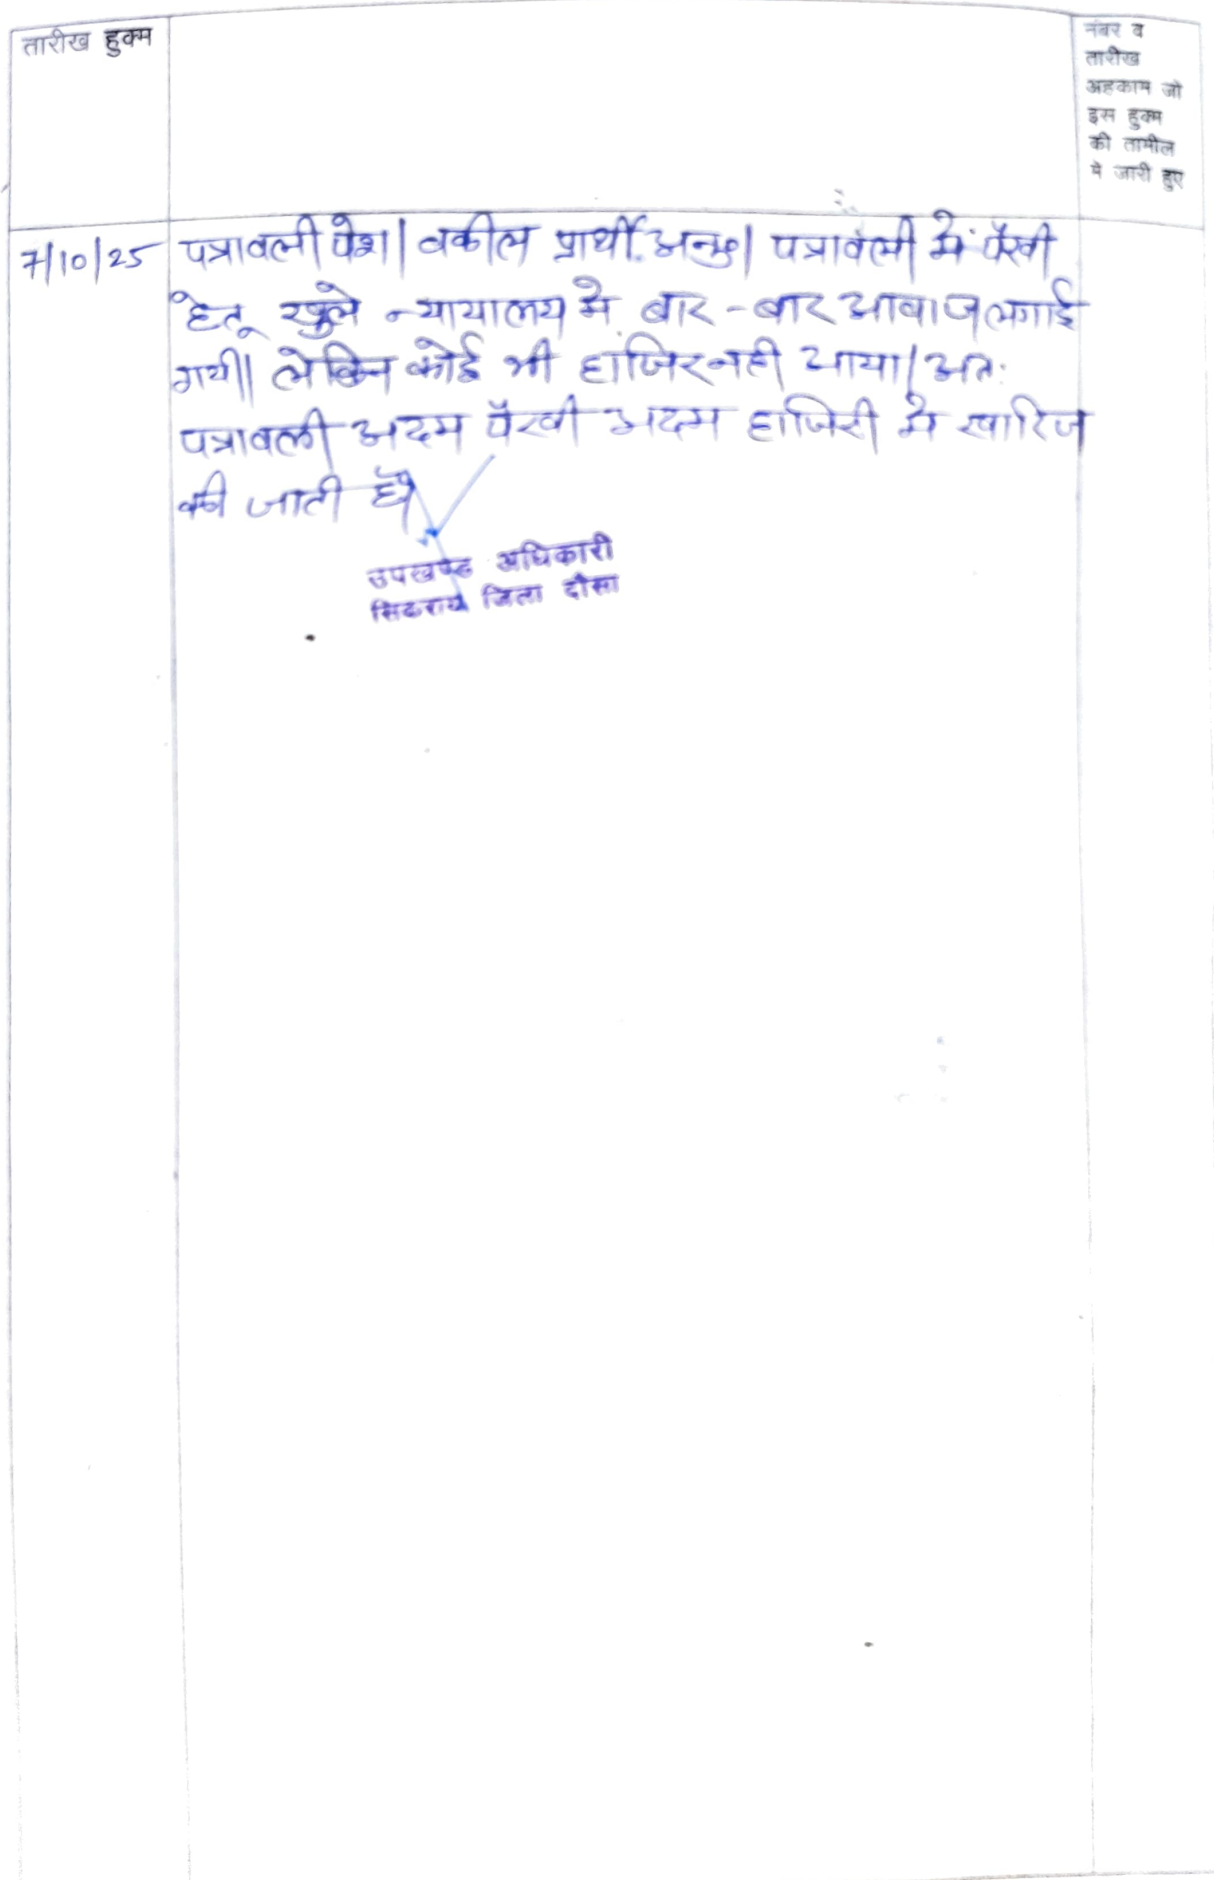 तारीख हुक्म
नंबर व
तारीख
अहकाम जो
इस हुक्म
की तामील
मे जारी हुए
7/10/25 पत्रावली पेश। वकील प्रार्थी अनु०। पत्रावली में पैरवी
हेतू खुले न्यायालय मे बार-बार आवाज लगाई
गयी। लेकिन कोई भी हाजिर नही आया। अतः
पत्रावली अदम पैरवी अदम हाजिरी मे खारिज
की जाती है।
उपखण्ड अधिकारी
सिकराय जिला दौसा